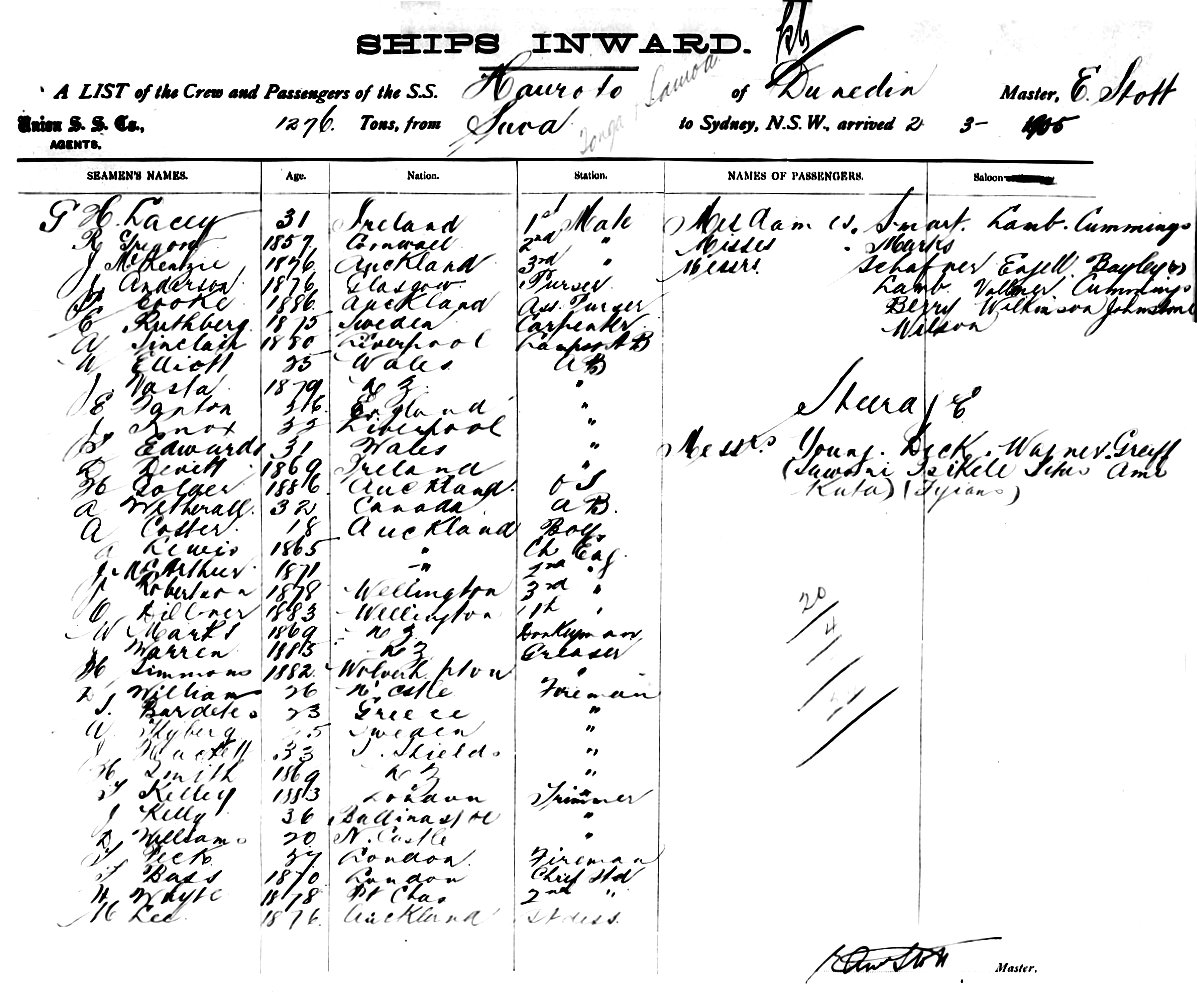 SHIPS INWARD.
A LIST of the Crew and Passengers of the S.S. Hauroto of Dunedin Master, E. Stott
Union S. S. Co., 1276. Tons, from Suva Tonga Samoa to Sydney, N.S.W., arrived 2 3- 1905
AGENTS.
SEAMEN'S NAMES. Age. Nation. Station. NAMES OF PASSENGERS. Saloon
G H. Lacey 31 Ireland 1st Mate Mesdames, Smart. Lamb. Cummings
R Gregory 1857 Cornwall 2nd " Misses . Marks
J McKenzie 1876 Auckland 3rd " Messrs. Schafner Enjell Bayley
J. Anderson 1876 Glasgow Purser Lamb Vollmer Cummings
Cooke 1886 Auckland Ass. Purser Berry Wilkinson Johnstone
E Ruthberg 1875 Sweden Carpenter Wilson
A Sinclair 1850 Liverpool Lamps A B
W Elliott 25 Wales A B
J. Vasta 1879 N Z "
E Tanton England "
J Knox 33 Liverpool "
Edwards 31 Wales " Messrs Young. Deck. Wagner. Greiff
D Devitt 1869 Ireland "
H Golder 1886 Auckland O S
A Witherall. 32 Canada A B.
A Coster 18 Auckland Boy
Lewis 1865 " Ch Eng
J. McArthur 1871 " 2nd "
J Robertson 1878 Wellington 3rd "
O Dillner 1883 Wellington "
W Marks 1869 N Z Donkeyman
J Warren 1883 N Z Greaser
H Simmons 1882 Wolverh.pton "
D William 26 N. Castle Foreman
S. Bardetes 23 Greece "
A Myberg 25 Sweden "
J Hackett 33 S. Shields "
H Smith 1869 N Z "
T Kelley 1883 London Trimmer
J Kelly 36 Ballinasloe "
D Williams 20 N. Castle "
T Peck 37 London Fireman
T Bass 1870 London Chief Std
H Whyte 1878 Pt Chas 2nd "
M Lee 1876 Auckland Stdess.
Steerage
20
4
Master.